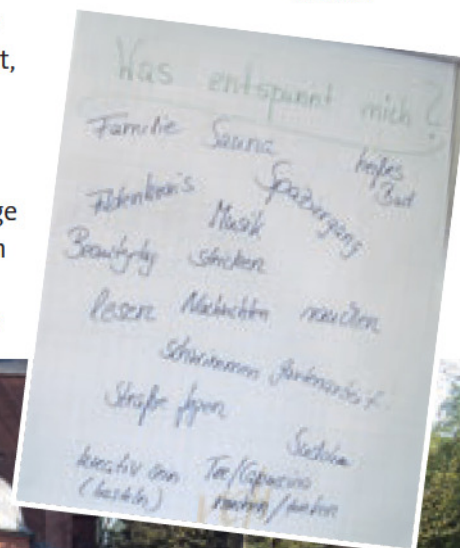 t,
ge
n
Was entspannt mich?
Familie Sauna heißes
Bad
Feldenkrais Spaziergang
Musik
Beautyday stricken
lesen Nachrichten rauchen
schwimmen Gartenarbeit
Straße fegen
Sudoku
kreativ sein Tee/Capuccino
(basteln)